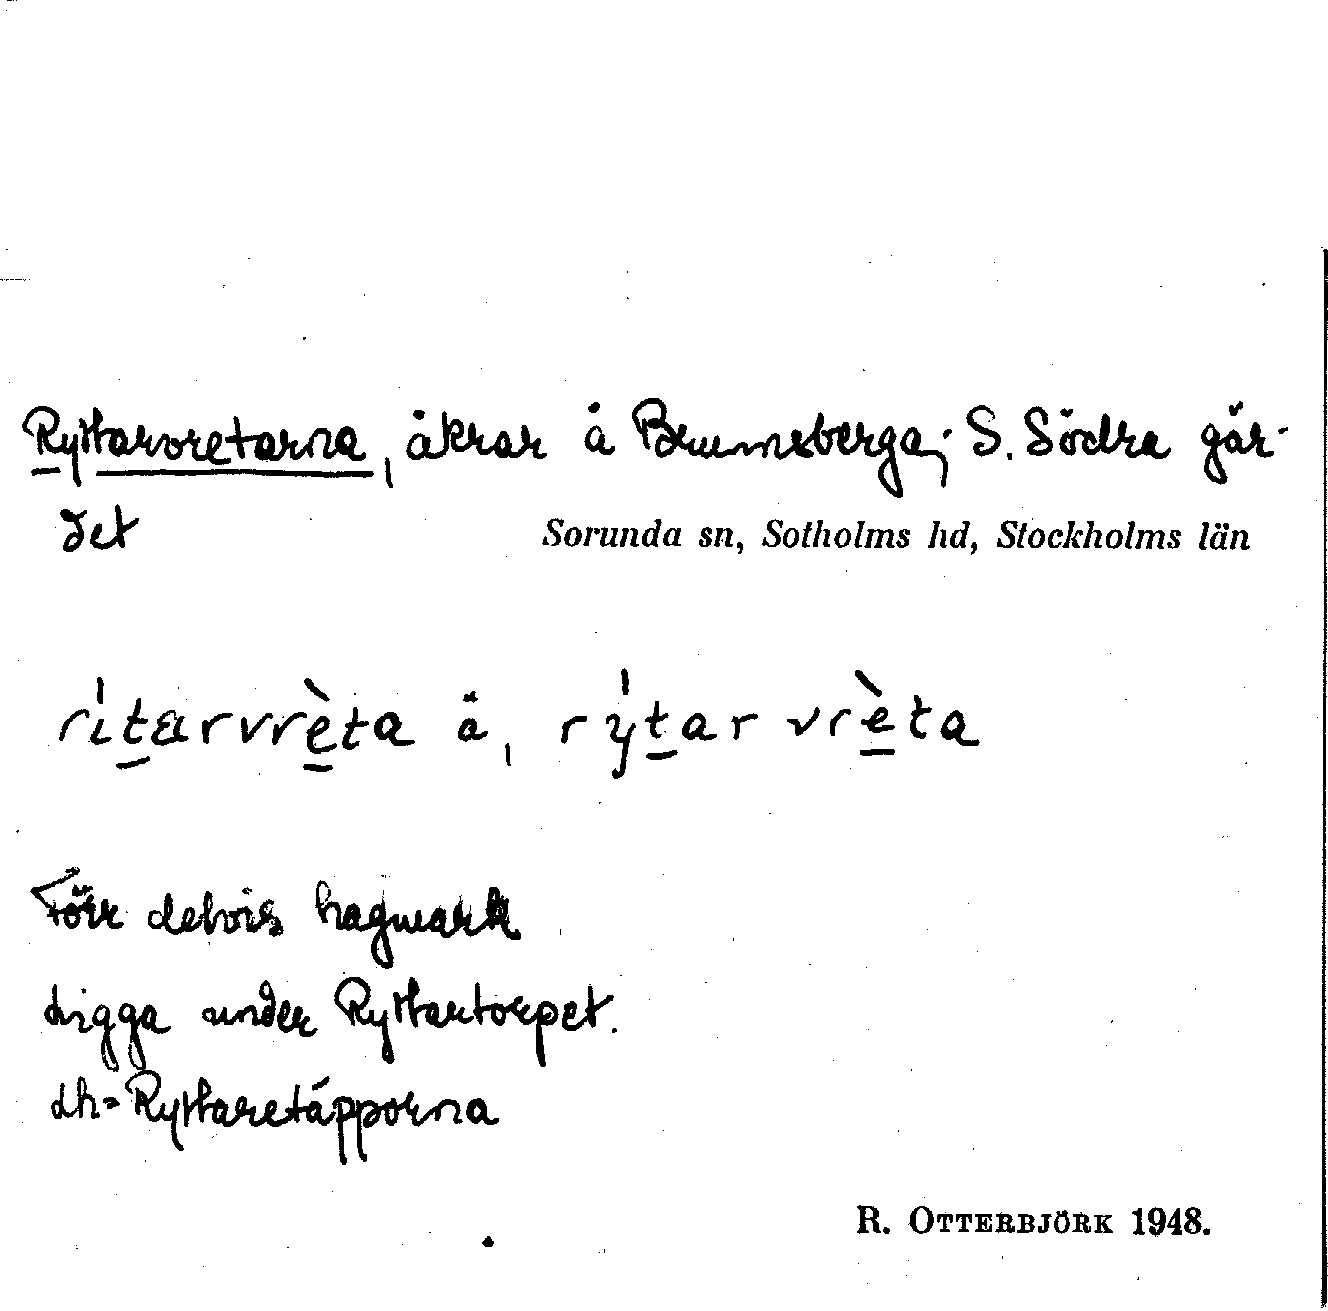 Ryttarvretarna, åkrar å Brunnsberga; S. Södra gär-
det
Sorunda sn, Sotholms hd, Stockholms län
rìtarvrèta å, rýtar vrèta
Förr delvis hagmark
Ligga under Ryttartorpet.
dh = Ryttaretäpporna
R. OTTERBJÖRK 1948.